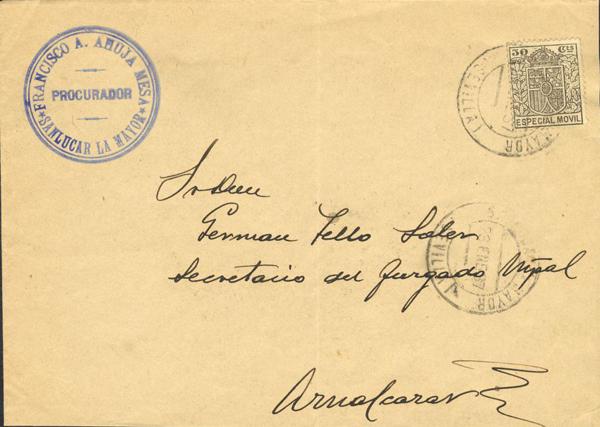 FRANCISCO A. AHUJA MESA
PROCURADOR
*SANLUCAR LA MAYOR*
50 Cts
ESPECIAL MOVIL
(SEVILLA)
MAYOR
Sr Don
German Tello Soler
Secretario del Juzgado Mpal
ENE
MAYOR